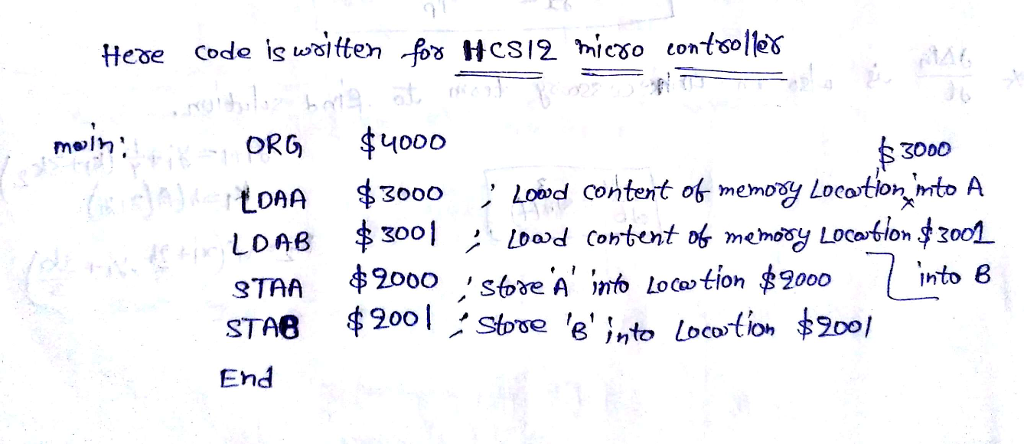 Here code is written for HCS12 micro controller
main: ORG $4000
LDAA $3000 ; Load content of memory Location $3000 into A
LDAB $3001 ; Load content of memory Location $3001 into B
STAA $2000 ; Store 'A' into Location $2000
STAB $2001 ; Store 'B' into Location $2001
End